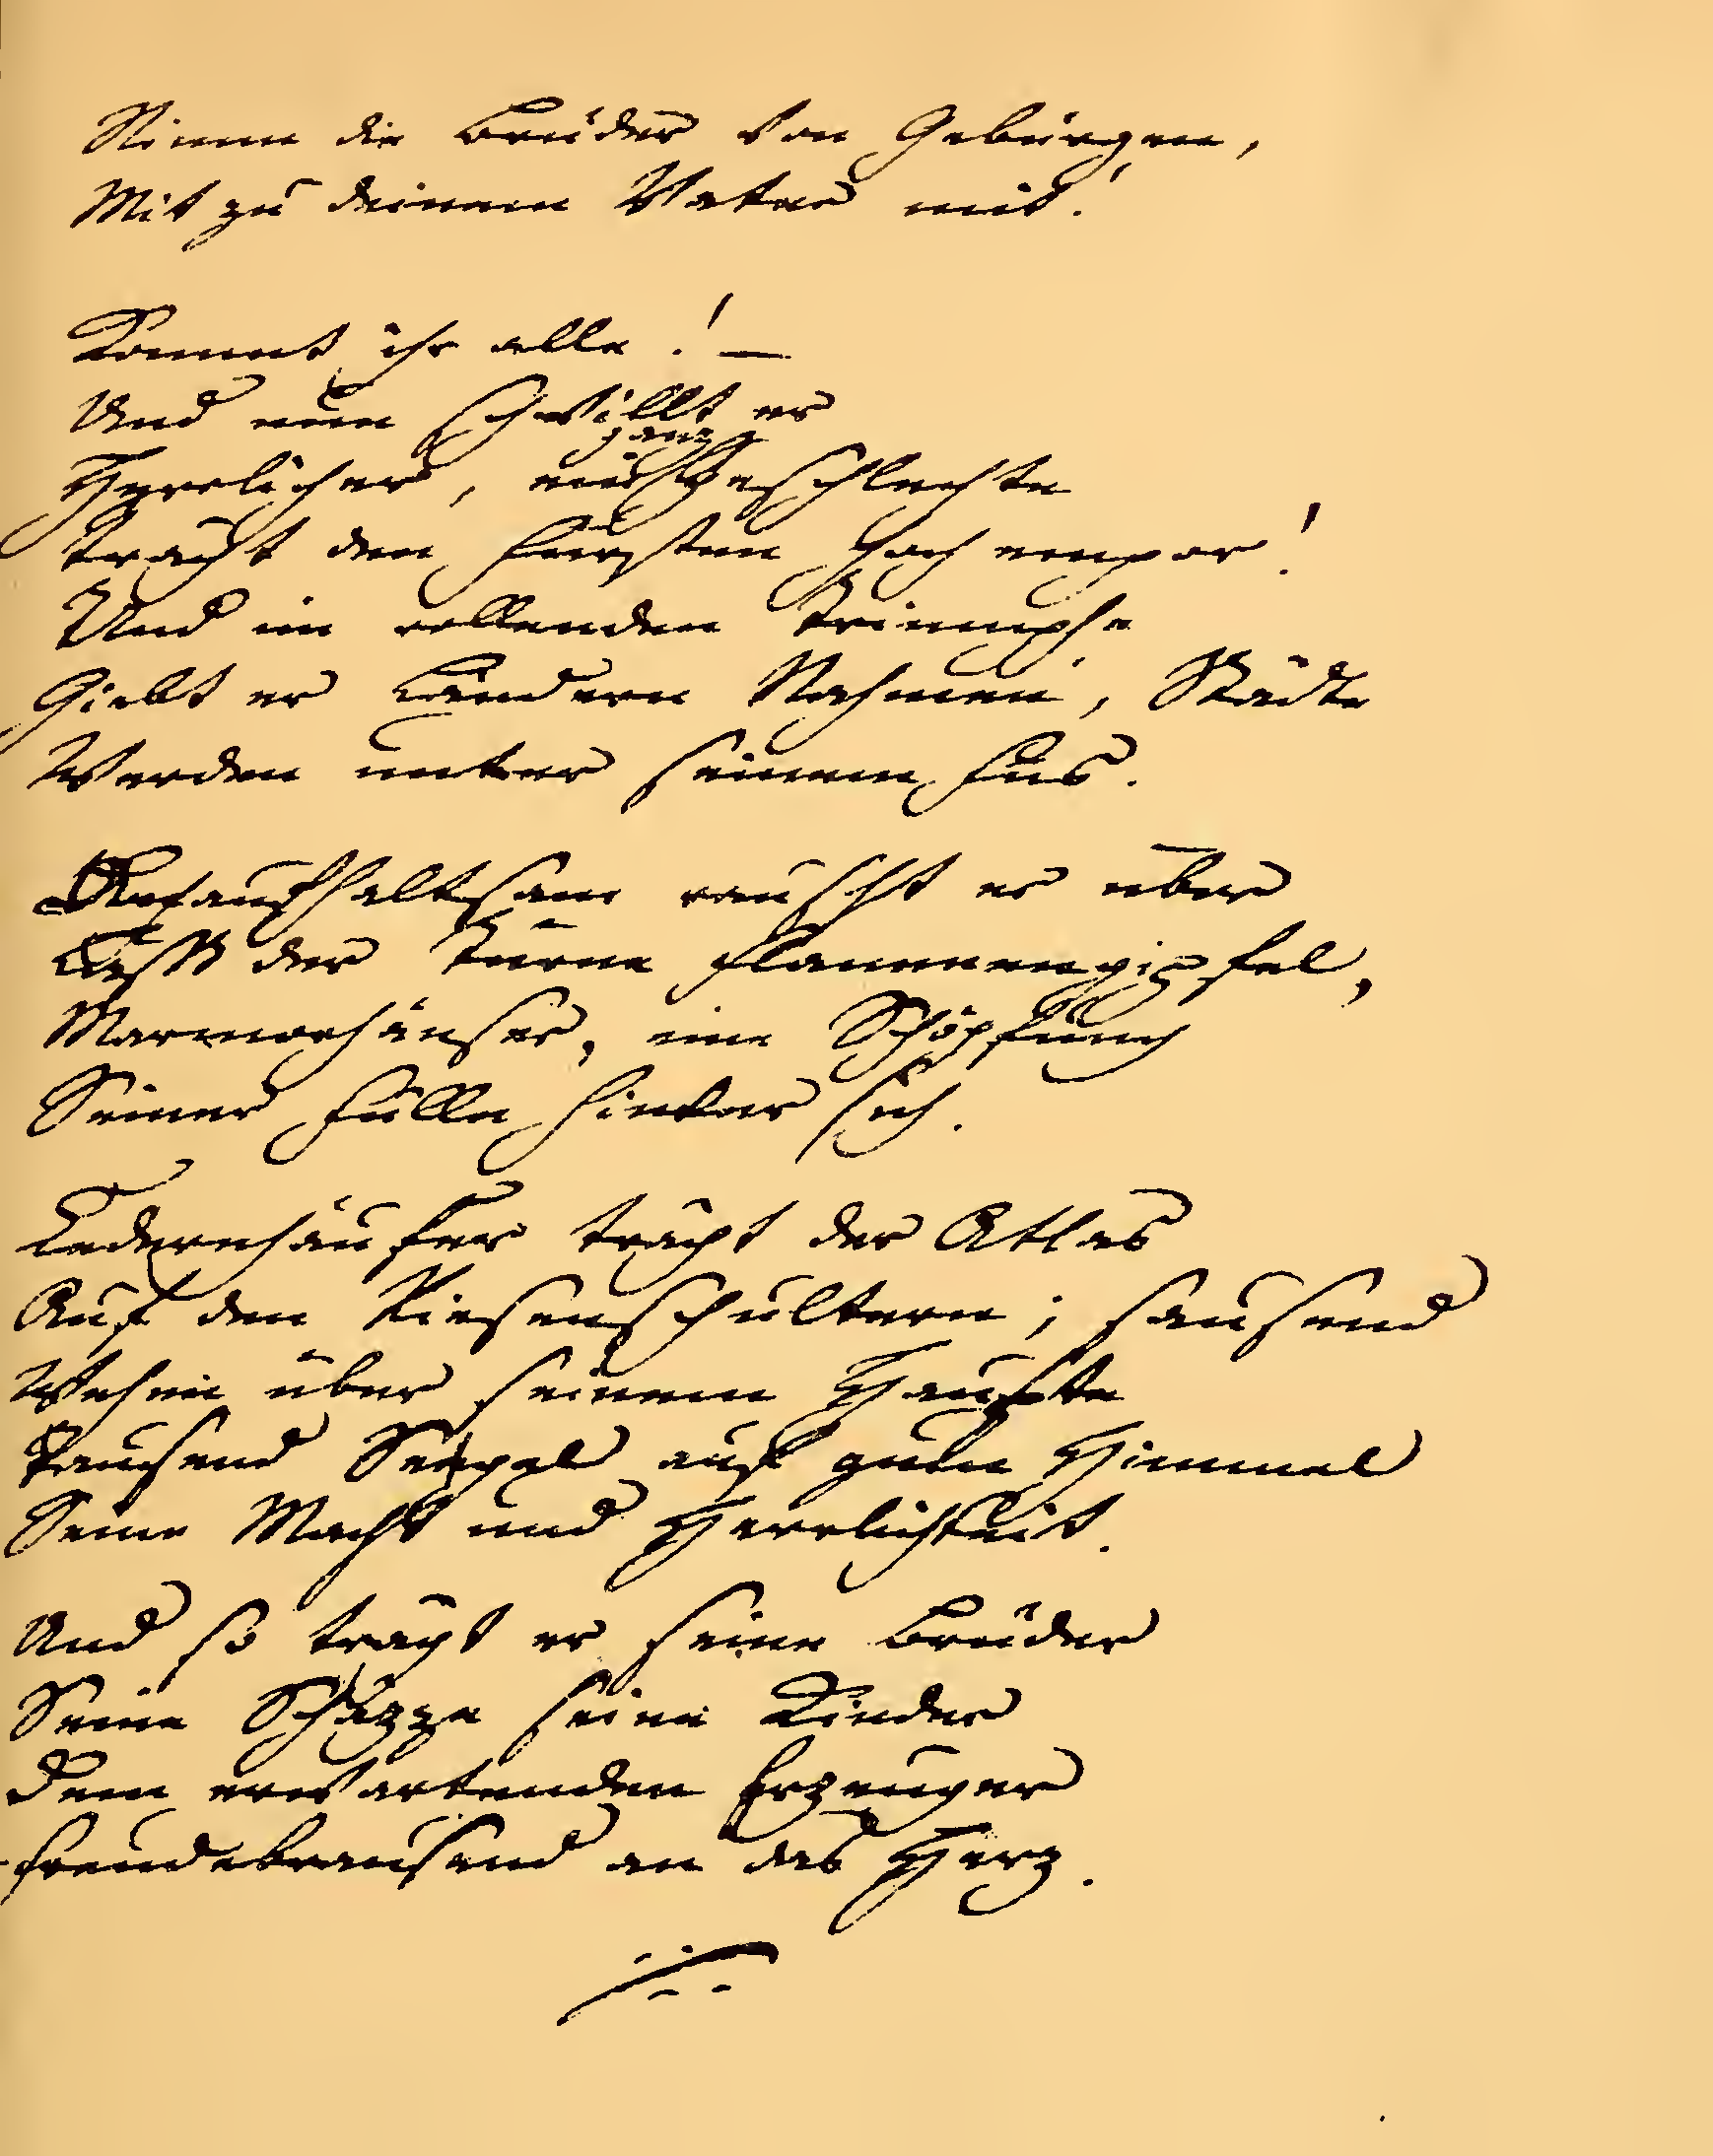 Nimm die Brüder von Gebürgen,
Mit zu deinem Vater mit!
Kommt ihr alle! —
Und nun schwillt er
ganz
Herrlicher, ein Geschlechte
Trägt den Fürsten hoch empor!
Und im rollenden Triumphe
Giebt er Ländern Nahmen, Städte
Werden unter seinem Fus.
Unaufhaltsam rauscht er über
Lässt der Türne Flammengipfel,
Marmorhäuser, eine Schöpfung
Seiner Fülle hinter sich.
Cedernhäuser trägt der Atlas
Auf den Riesenschultern; sausend
Wehen über seinem Haupte
Tausend Seegel auf zum Himmel
Seine Macht und Herrlichkeit.
Und so trägt er seine Brüder
Seine Schäzze seine Kinder
Dem erwartenden Erzeuger
Freudebrausend an das Herz.